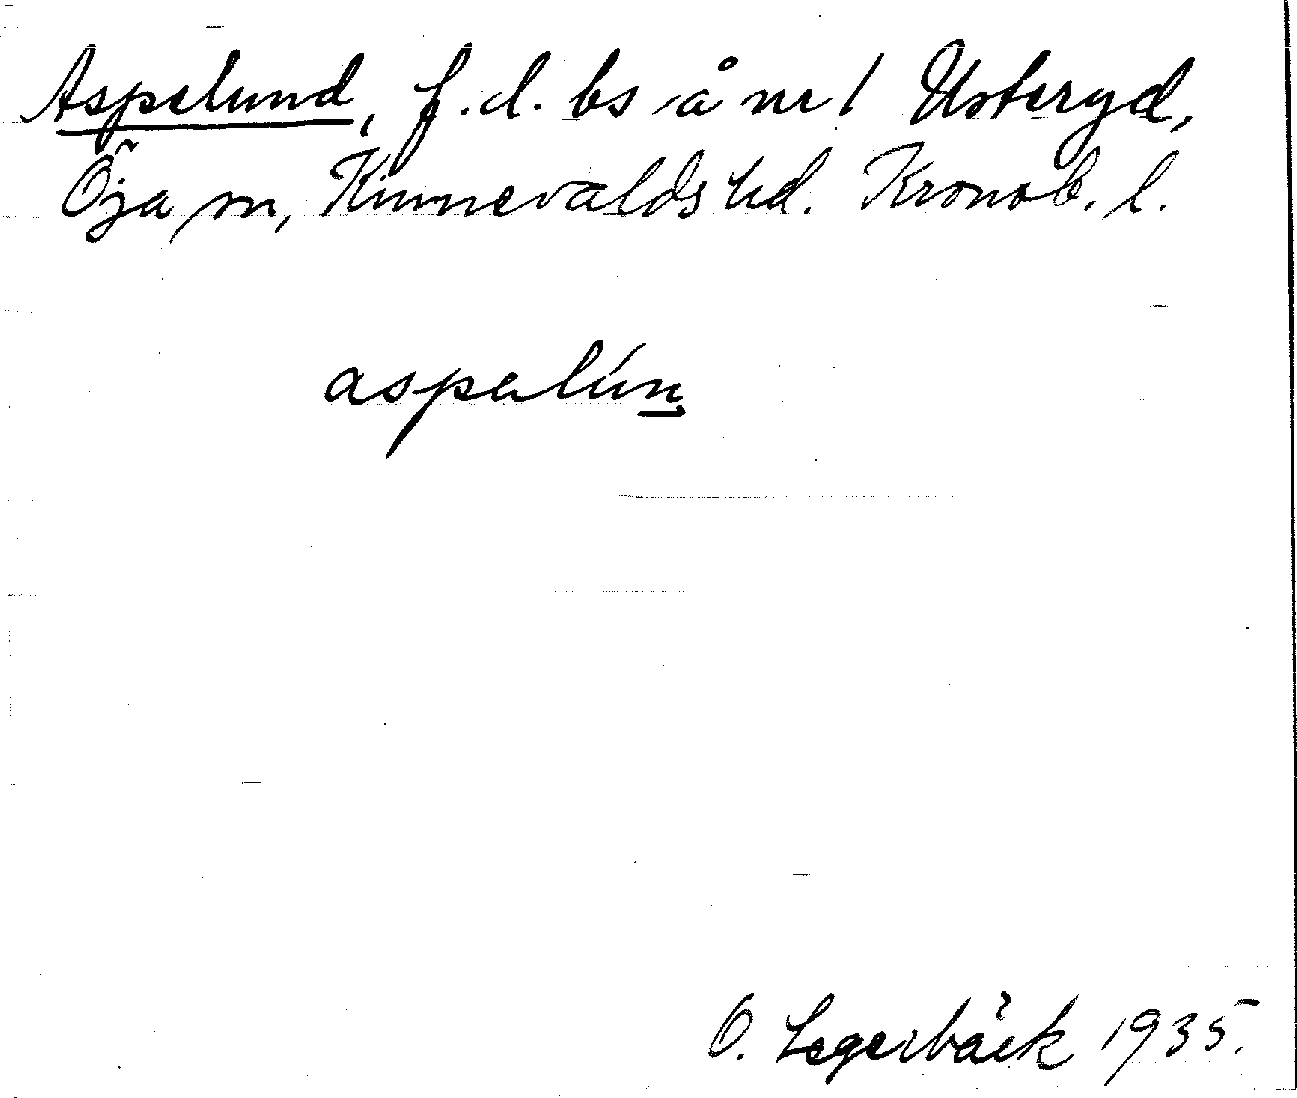 Aspelund, f.d. bs å nr 1 Usteryd,
Öja sn, Kinnevalds hd. Kronob. l.
aspalún
O. Legerbäck 1935.